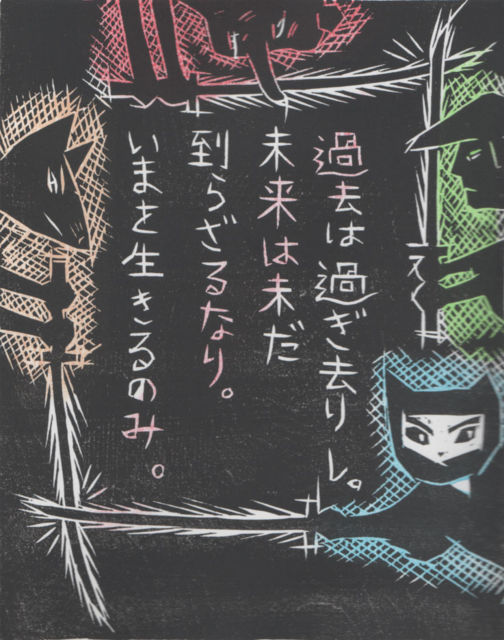 過去は過ぎ去りし。
未来は未だ
到らざるなり。
いまを生きるのみ。